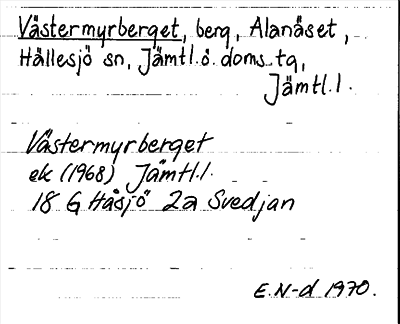 Västermyrberget, berg, Alanäset,
Hällesjö sn, Jämtl. ö. doms. tg,
Jämtl. l.
Västermyrberget
ek (1968) Jämtl. l.
18 G Håsjö 2a Svedjan
E. N-d 1970.